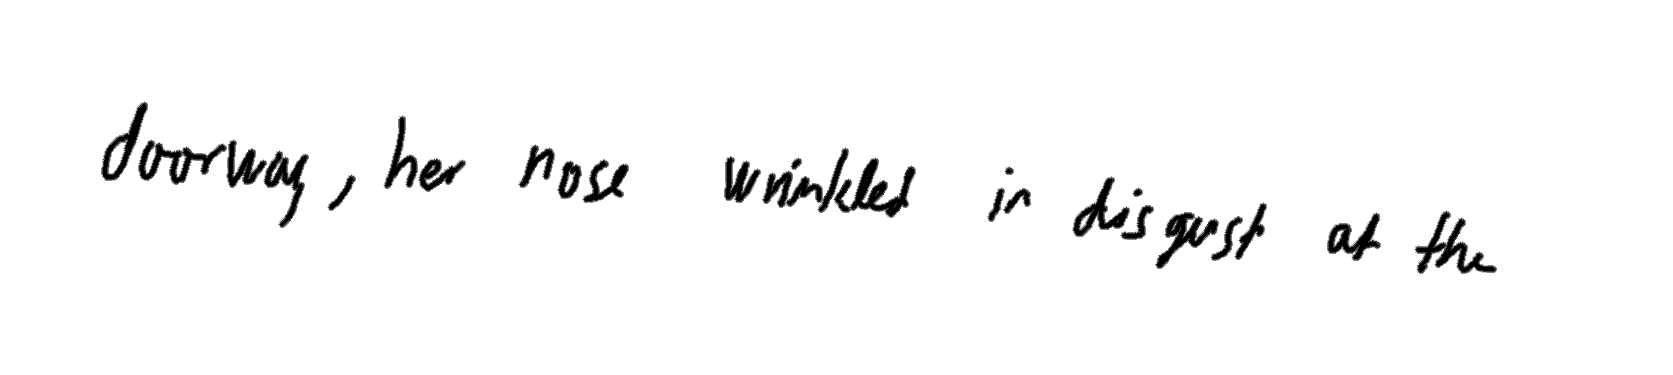 doorway, her nose wrinkled in disgust at the